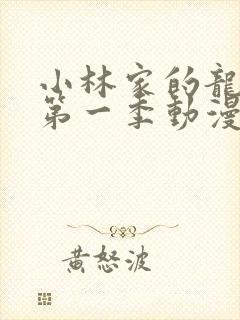 小林家的龍
第一季動漫
黃怒波